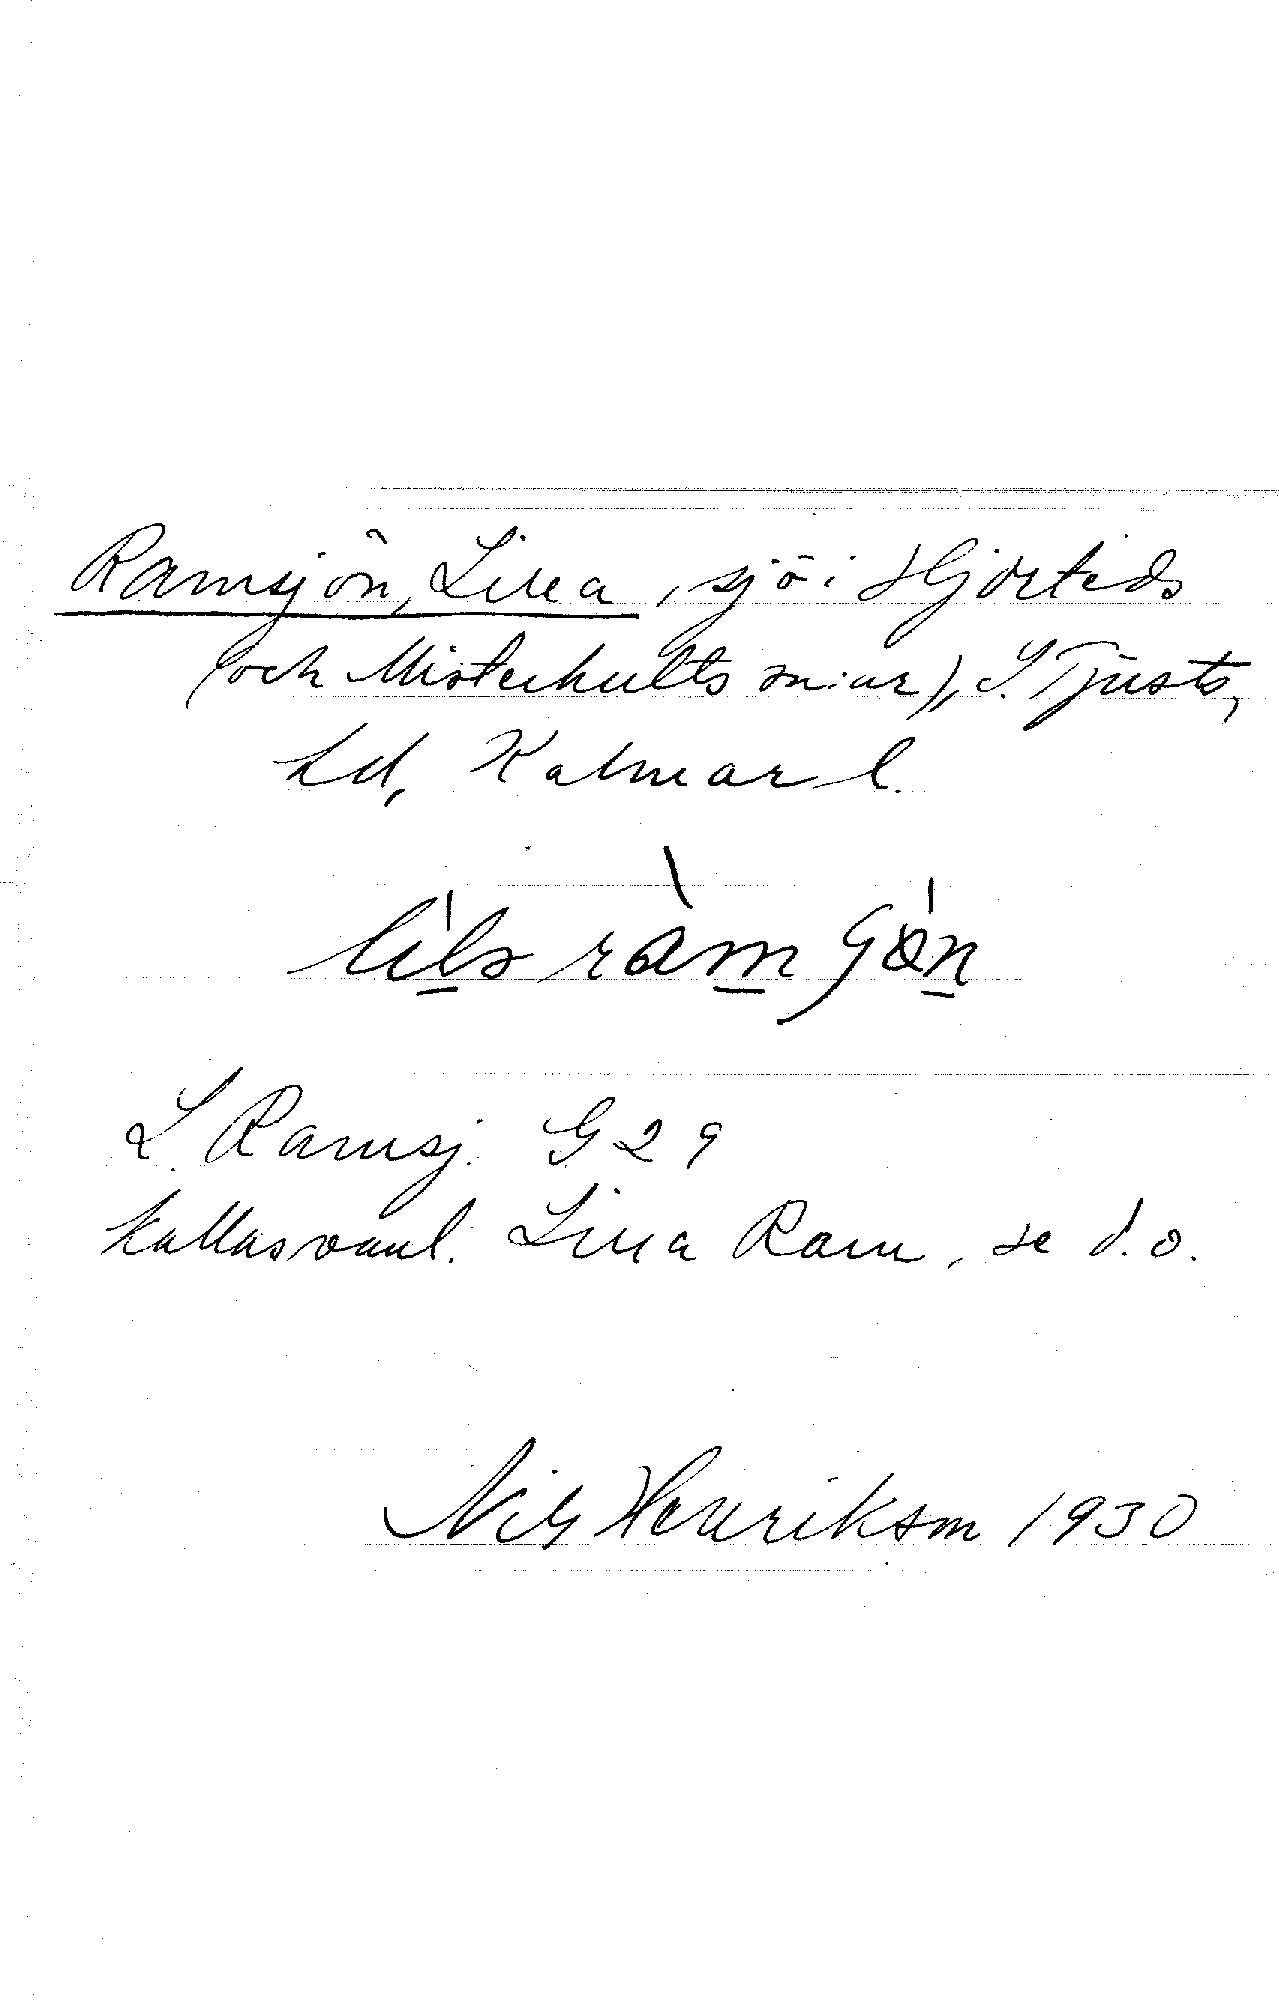 Ramsjön, Lilla, sjö i Hjorteds
(och Misterhults sn:ar), S. Tjusts
hd, Kalmar l.
L. Ramsj. G 29
kallas vanl. Lilla Ram, se d.o.
Nils Henrikson 1930